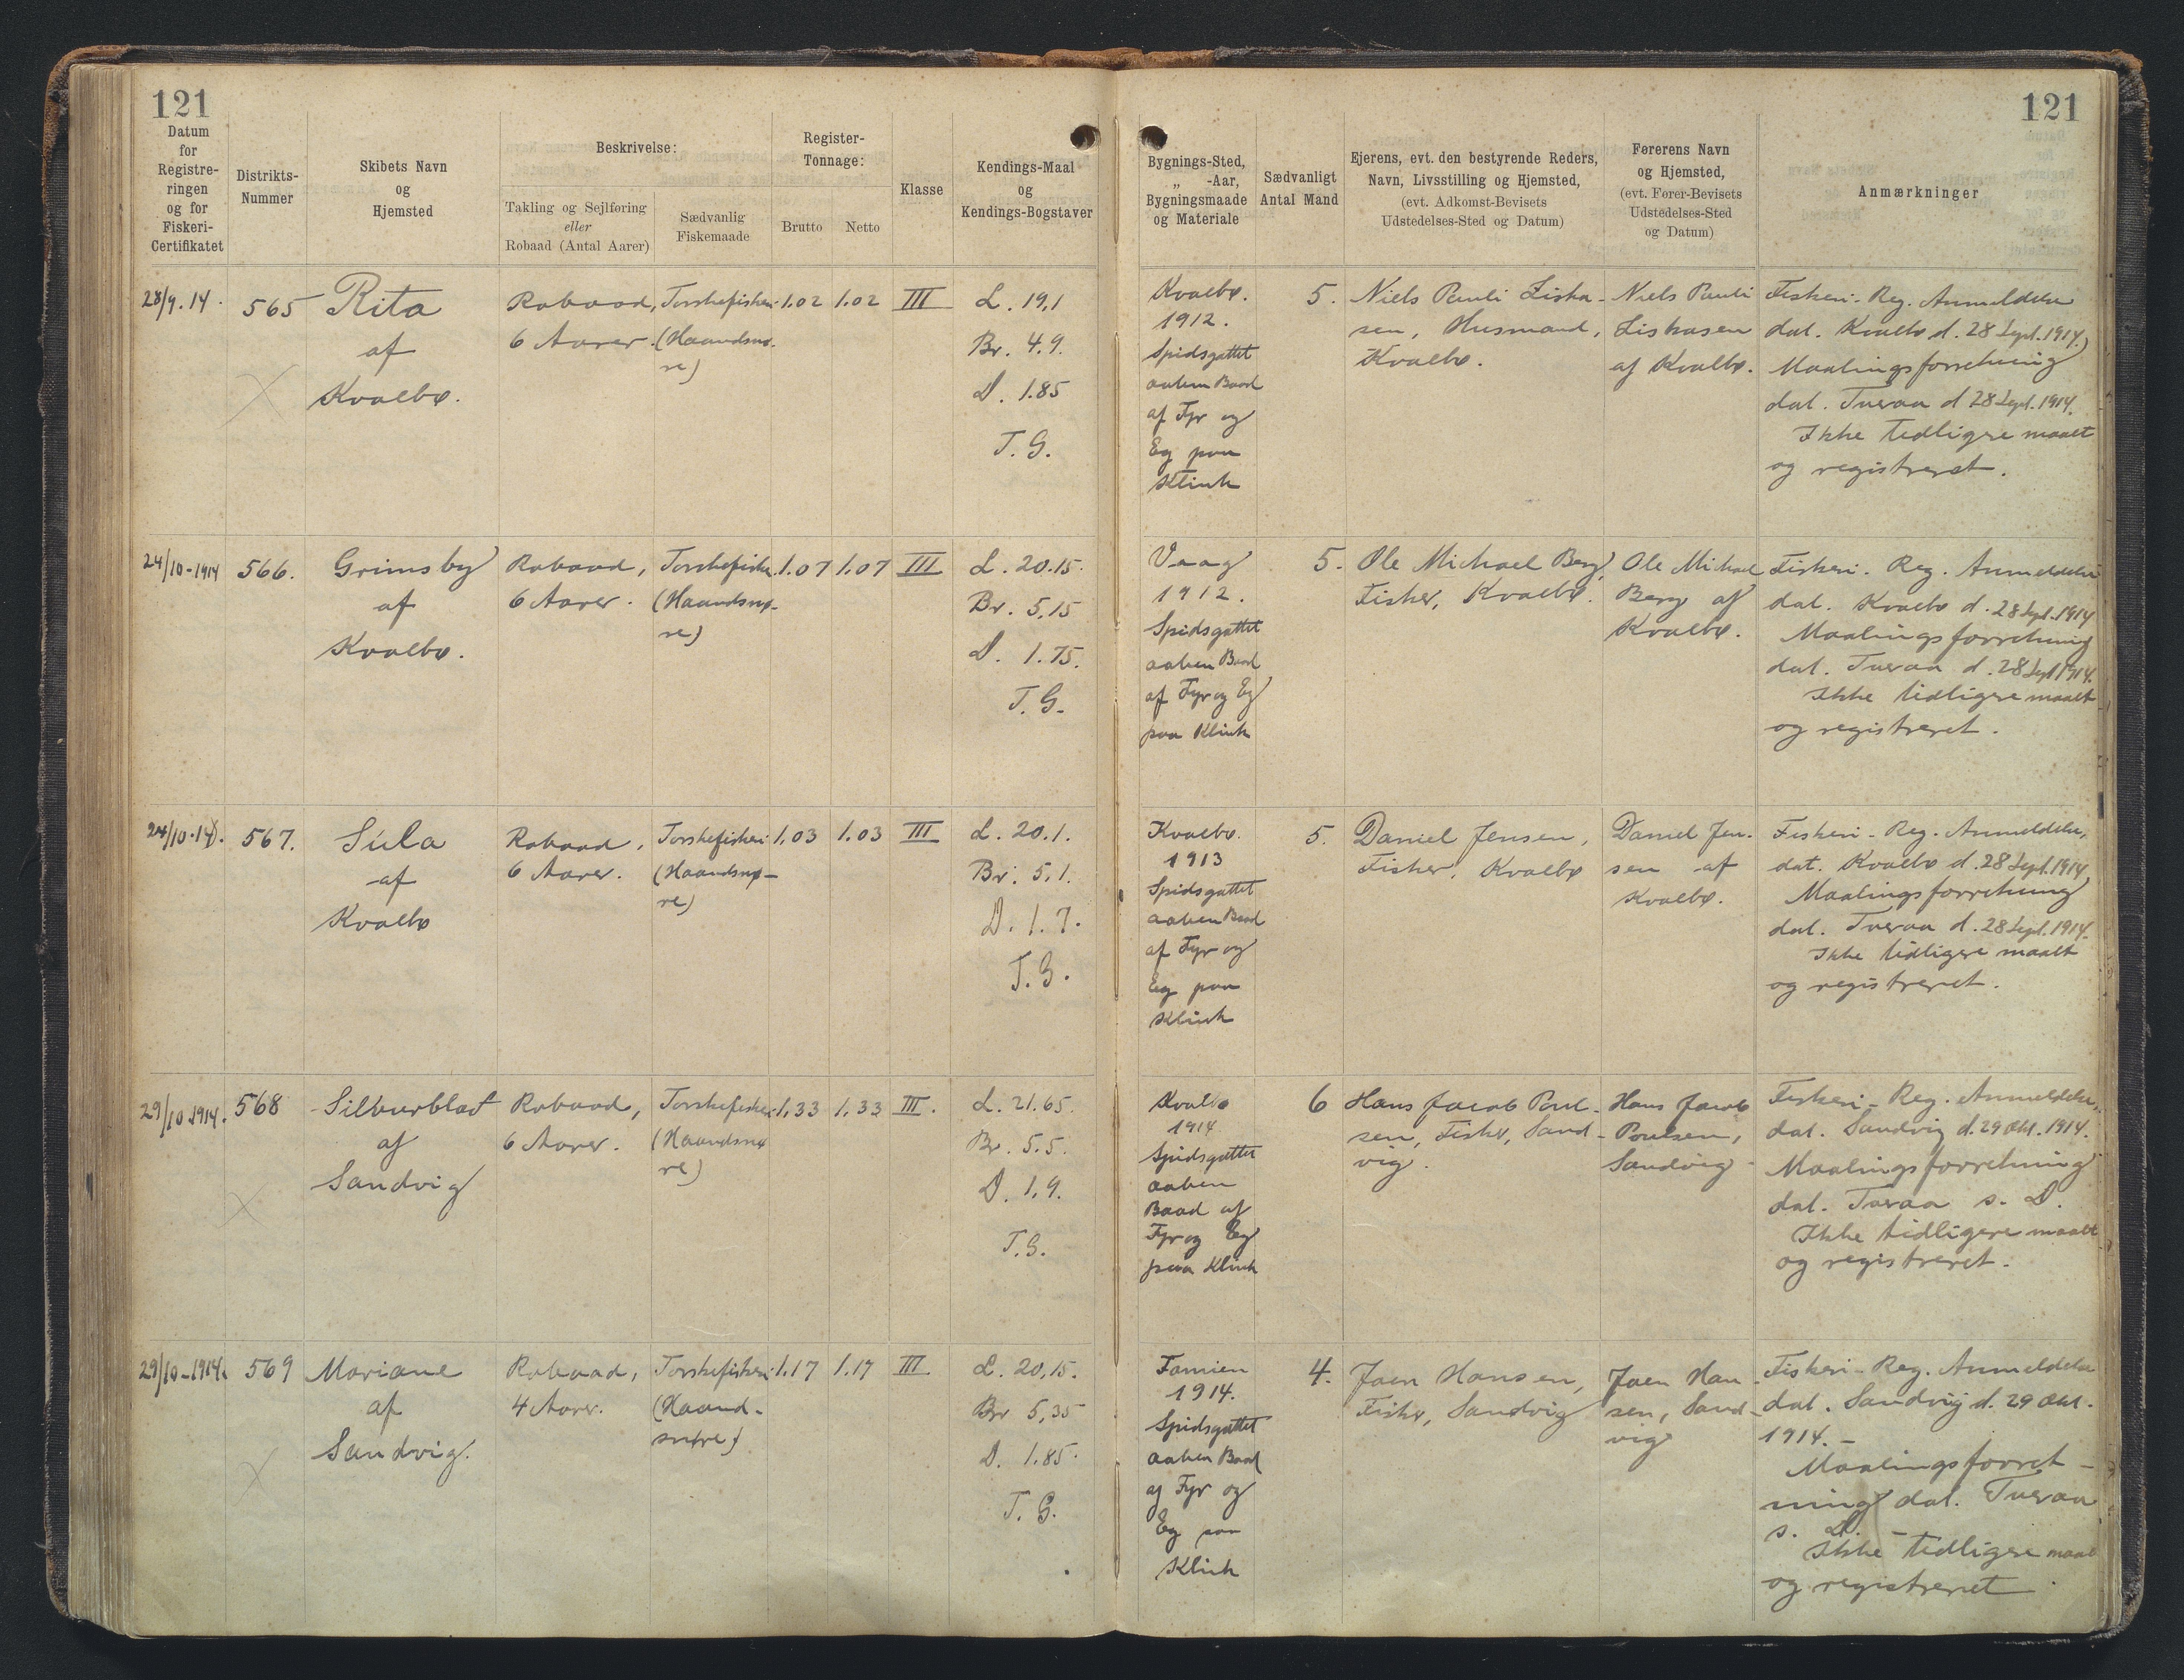 121
121
Datum
for
Registre-
ringen
og for
Fiskeri-
Certifikatet
Distrikts-
Nummer
Skibets Navn
og
Hjemsted
Beskrivelse:
Takling og Sejlføring
eller
Robaad (Antal Aarer)
Sædvanlig
Fiskemaade
Register-
Tonnage:
Brutto
Netto
Klasse
Kendings-Maal
og
Kendings-Bogstaver
Bygnings-Sted,
„ -Aar,
Bygningsmaade
og Materiale
Sædvanligt
Antal Mand
Ejerens, evt. den bestyrende Reders,
Navn, Livsstilling og Hjemsted,
(evt. Adkomst-Bevisets
Udstedelses-Sted og Datum)
Førerens Navn
og Hjemsted,
(evt. Fører-Bevisets
Udstedelses-Sted
og Datum)
Anmærkninger
28/9.14.
565
Rita
af
Kvalbø.
Robaad,
6 Aarer.
Torskefiskeri
(Haandsnø-
re)
1.02
1.02
III
L. 19,1
Br. 4.9.
D. 1.85
T.G.
Kvalbø.
1912.
Spidsgattet
aaben Baad
af Fyr og
Eg paa
Klink
5.
Niels Pauli Liska-
sen, Husmand,
Kvalbø.
Niels Pauli
Liskasen
af Kvalbø.
Fiskeri-Reg. Anmeldelse
dat. Kvalbø d. 28 Sept. 1914.
Maalingsforretning
dat. Tveraa d 28 Sept. 1914.
Ikke tidligere maalt
og registreret.
24/10-1914
566.
Grimsby
af
Kvalbø.
Robaad,
6 Aarer.
Torskefiskeri
(Haandsnø-
re)
1.07
1.07
III
L. 20.15.
Br. 5,15
D. 1.75.
T.G.
Vaag
1912.
Spidsgattet
aaben Baad
af Fyr og Eg
paa Klink
5.
Ole Michael Berg,
Fisker, Kvalbø.
Ole Michael
Berg af
Kvalbø.
Fiskeri-Reg. Anmeldelse
dat. Kvalbø d. 28 Sept. 1914
Maalingsforretning
dat. Tveraa d. 28 Sept 1914.
Ikke tidligere maalt
og registreret.
24/10.14.
567.
Súla
af
Kvalbø
Robaad,
6 Aarer.
Torskefiskeri
(Haandsnø-
re)
1,03
1.03
III
L. 20.1.
Br. 5,1.
D. 1.7.
T.G.
Kvalbø.
1913
Spidsgattet
aaben Baad
af Fyr og
Eg paa
Klink
5.
Daniel Jensen,
Fisker, Kvalbø
Daniel Jen-
sen af
Kvalbø.
Fiskeri-Reg. Anmeldelse,
dat. Kvalbø d. 28 Sept. 1914
Maalingsforretning
dat. Tveraa d. 28 Sept. 1914.
Ikke tidligere maalt
og registreret.
29/10 1914.
568
Silvurblad
af
Sandvig
Robaad,
6 Aarer.
Torskefiskeri
(Haandsnø
re)
1,33
1.33
III.
L. 21.65.
Br. 5.5.
D. 1,9.
T.G.
Kvalbø
1914
Spidsgattet
aaben
Baad af
Fyr og Eg
paa Klink
6
Hans Jacob Poul-
sen, Fisker, Sand-
vig.
Hans Jacob
Poulsen,
Sandvig
Fiskeri-Reg. Anmeldelse,
dat. Sandvig d. 29 Okt. 1914.
Maalingsforretning
dat. Tveraa s. D.
Ikke tidligere maalt
og registreret.
29/10-1914.
569
Mariane
af
Sandvig.
Robaad,
4 Aarer.
Torskefiskeri
(Haand-
snøre)
1.17
1.17
III
L. 20,15.
Br 5,35
D. 1.85.
T.G.
Famien
1914.
Spidsgattet
aaben Baad
af Fyr og
Eg paa
Klink
4.
Joen Hansen,
Fisker, Sandvig
Joen Han-
sen, Sand-
vig
Fiskeri-Reg. Anmeldelse
dat. Sandvig d. 29 Okt.
1914.-
Maalingsforret-
ning dat. Tveraa
s. D. -
Ikke tidligere maalt
og registreret.